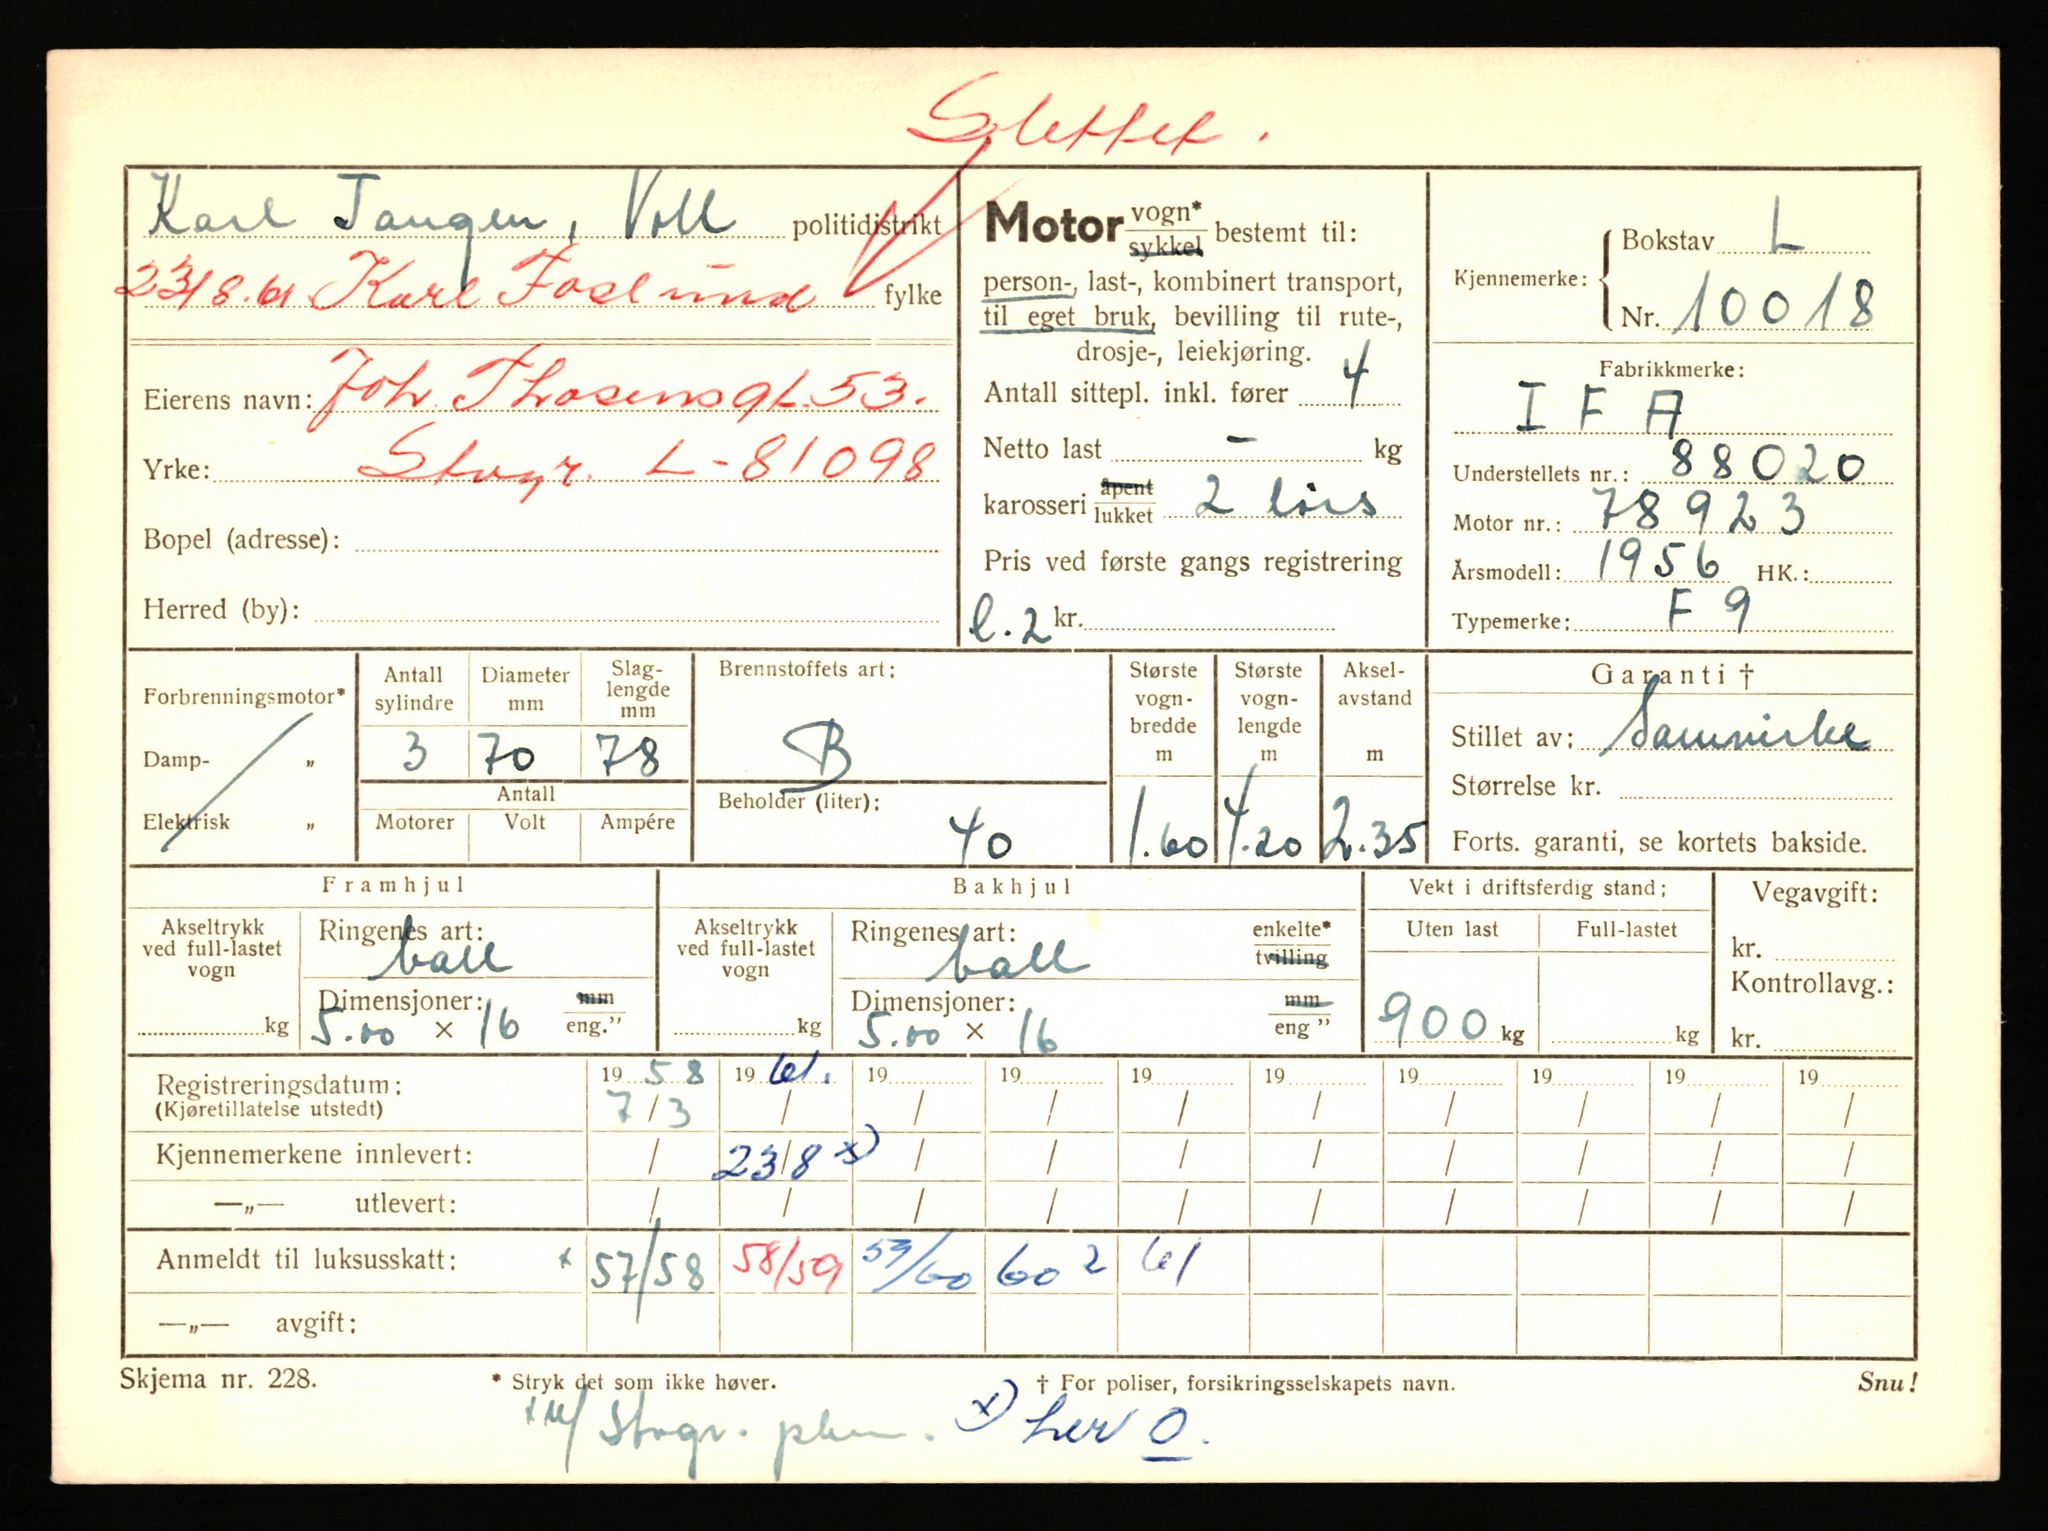 Slettet.
Karl Tangen, Voll politidistrikt
23/8.61 Karl Foslund fylke
Eierens navn: Joh. Thosensgt. 53.
Yrke: Stvgr. L-81098
Bopel (adresse):
Herred (by):
Motor vogn* sykkel bestemt til:
person-, last-, kombinert transport,
til eget bruk, bevilling til rute-,
drosje-, leiekjøring.
Antall sittepl. inkl. fører 4
Netto last - kg
karosseri åpent lukket 2 dørs
Pris ved første gangs registrering
l.2 kr.
Kjennemerke: Bokstav L
Nr. 10018
Fabrikkmerke:
IFA
Understellets nr.: 88020
Motor nr.: 78923
Årsmodell: 1956 HK.:
Typemerke: F 9
Forbrenningsmotor*
Damp- „
Elektrisk „
Antall sylindre 3
Diameter mm 70
Slag-lengde mm 78
Antall
Motorer Volt Ampére
Brennstoffets art:
B
Beholder (liter):
40
Største vogn-bredde m 1.60
Største vogn-lengde m 4.20
Aksel-avstand m 2.35
Garanti †
Stillet av: Samvirke
Størrelse kr.
Forts. garanti, se kortets bakside.
Framhjul
Akseltrykk ved full-lastet vogn kg
Ringenes art: ball
Dimensjoner: mm
5.00 × 16 eng.”
Bakhjul
Akseltrykk ved full-lastet vogn kg
Ringenes art: ball enkelte* tvilling
Dimensjoner: mm
5.00 × 16 eng ”
Vekt i driftsferdig stand:
Uten last Full-lastet
900 kg kg
Vegavgift:
kr.
Kontrollavg.:
kr.
Registreringsdatum: 19 58 19 61. 19 19 19 19 19 19 19 19
(Kjøretillatelse utstedt) 7/3 / / / / / / / / /
Kjennemerkene innlevert: / 23/8 x) / / / / / / / /
—„— utlevert: / / / / / / / / / /
Anmeldt til luksusskatt: x 57/58 58/59 59/60 60 2 61
—„— avgift:
Skjema nr. 228. * Stryk det som ikke høver. † For poliser, forsikringsselskapets navn. Snu!
x m/ Stvgr. x) her O.